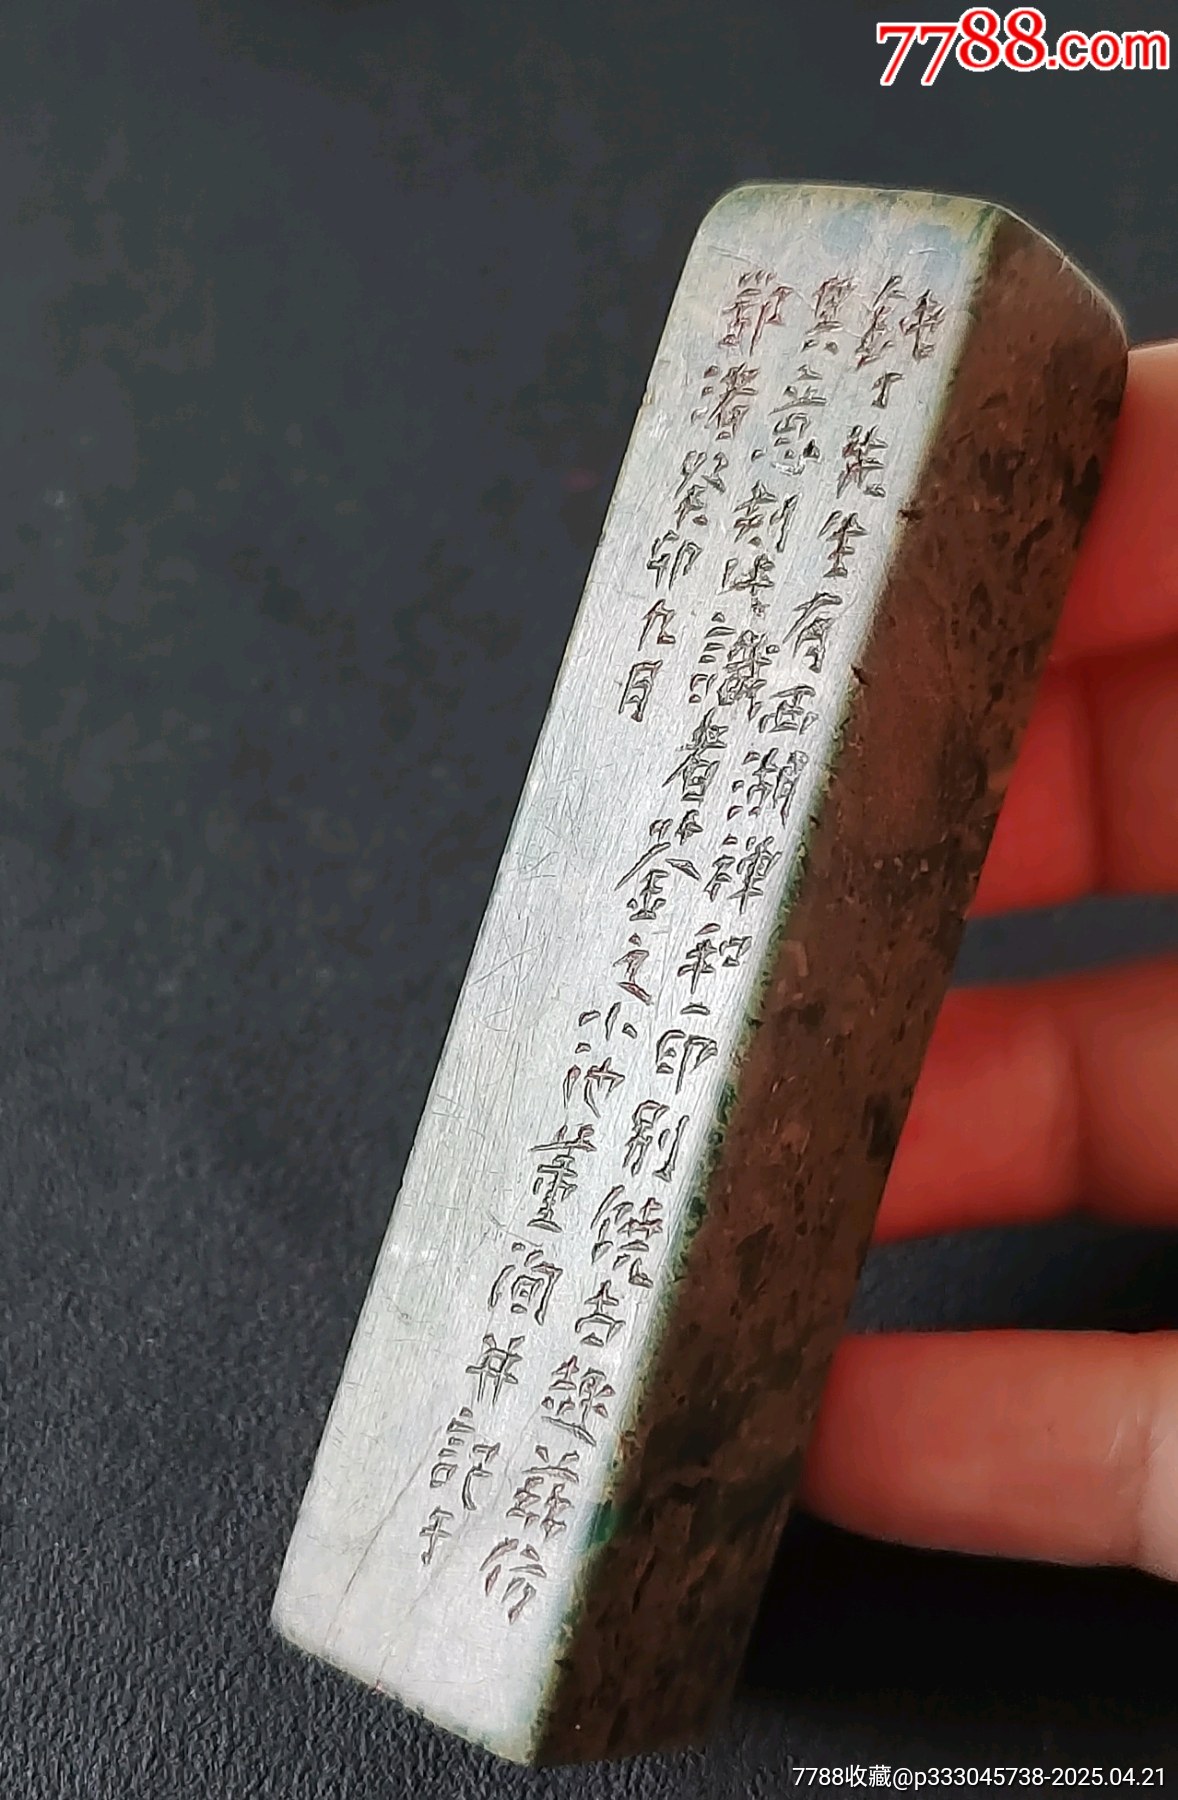 7788.com
鈍丁先生有西湖禪和一印別饒古趣茲仿
其意刻 識者荃之小 董 并記于
鄂渚癸卯九月
7788收藏@p333045738-2025.04.21